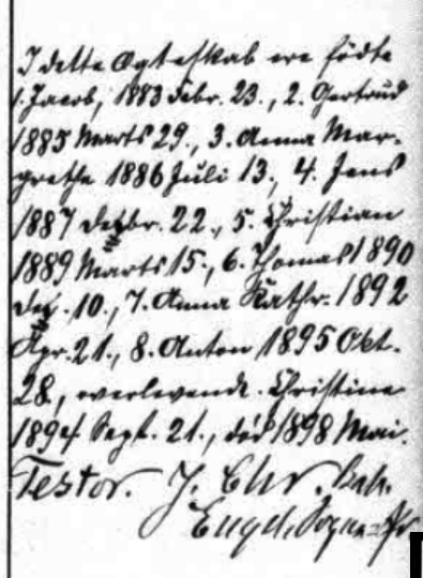 I dette Ægteskab ere fødte
1. Jacob, 1883 Febr. 23., 2. Gertrud
1885 Marts 29., 3. Anna Mar-
grethe 1886 Juli 13., 4. Jens
1887 Decbr. 22., 5. Christian
1889 Marts 15., 6. Thomas 1890
Dec. 10., 7. Anna Kathr. 1892
Apr. 21., 8. Anton 1895 Okt.
28., overlevende. Christine
1894 Sept. 21., død 1898 Mai.
Testor. J. Chr.
Sogne-Pr